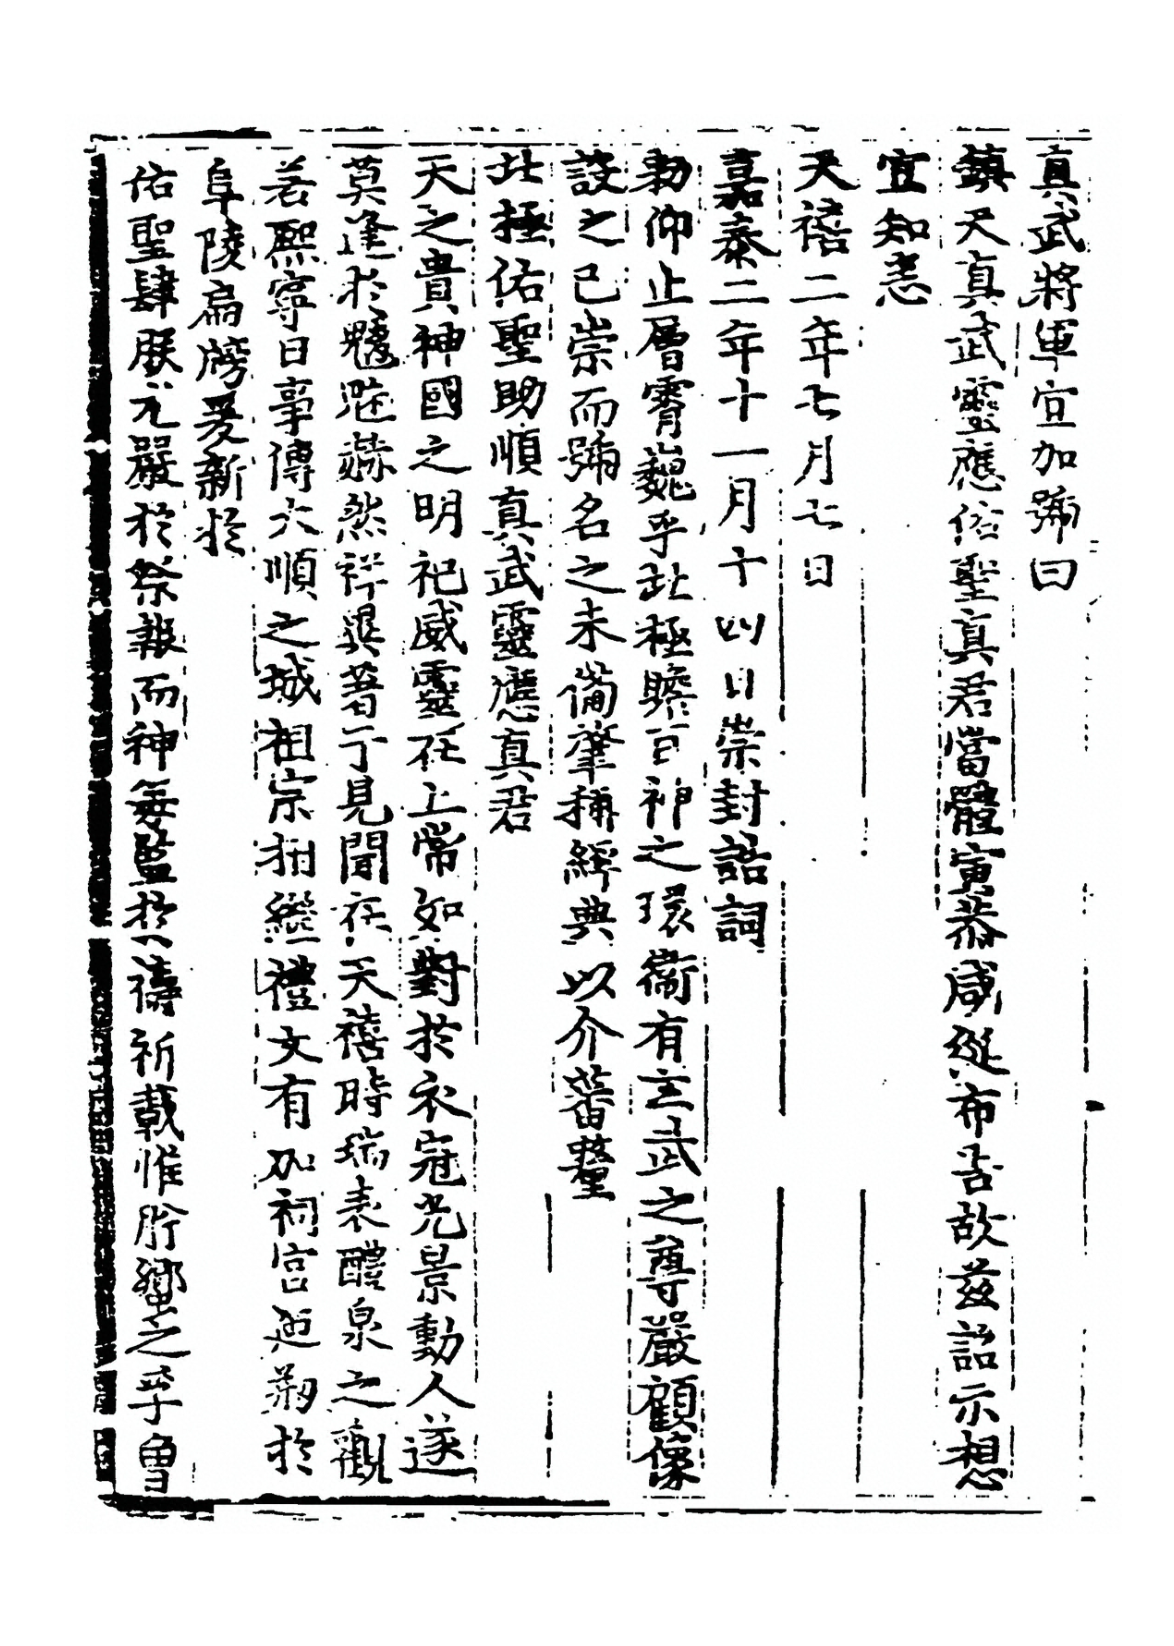 真武將軍宜加號曰
鎮天真武靈應佑聖真君當體寅恭咸從布告故兹詔示想
宜知悉
天禧二年七月七日
嘉泰二年十一月十四日崇封誥詞
勑仰止層霄巍乎北極瞻百神之環衛有玄武之尊嚴顧像
設之已崇而號名之未備肇稱縟典以介蕃釐
北極佑聖助順真武靈應真君
天之貴神國之明祀威靈在上常如對於衣冠光景動人遂
莫逢於魑魅赫然祥異著于見聞在天禧時瑞表醴泉之觀
若熙寧日事傳大順之城祖宗相繼禮文有加祠宮迺剏於
阜陵扁牓爰新於
佑聖肆朕尤嚴於祭報而神每監於禱祈載惟肸蠁之孚曾